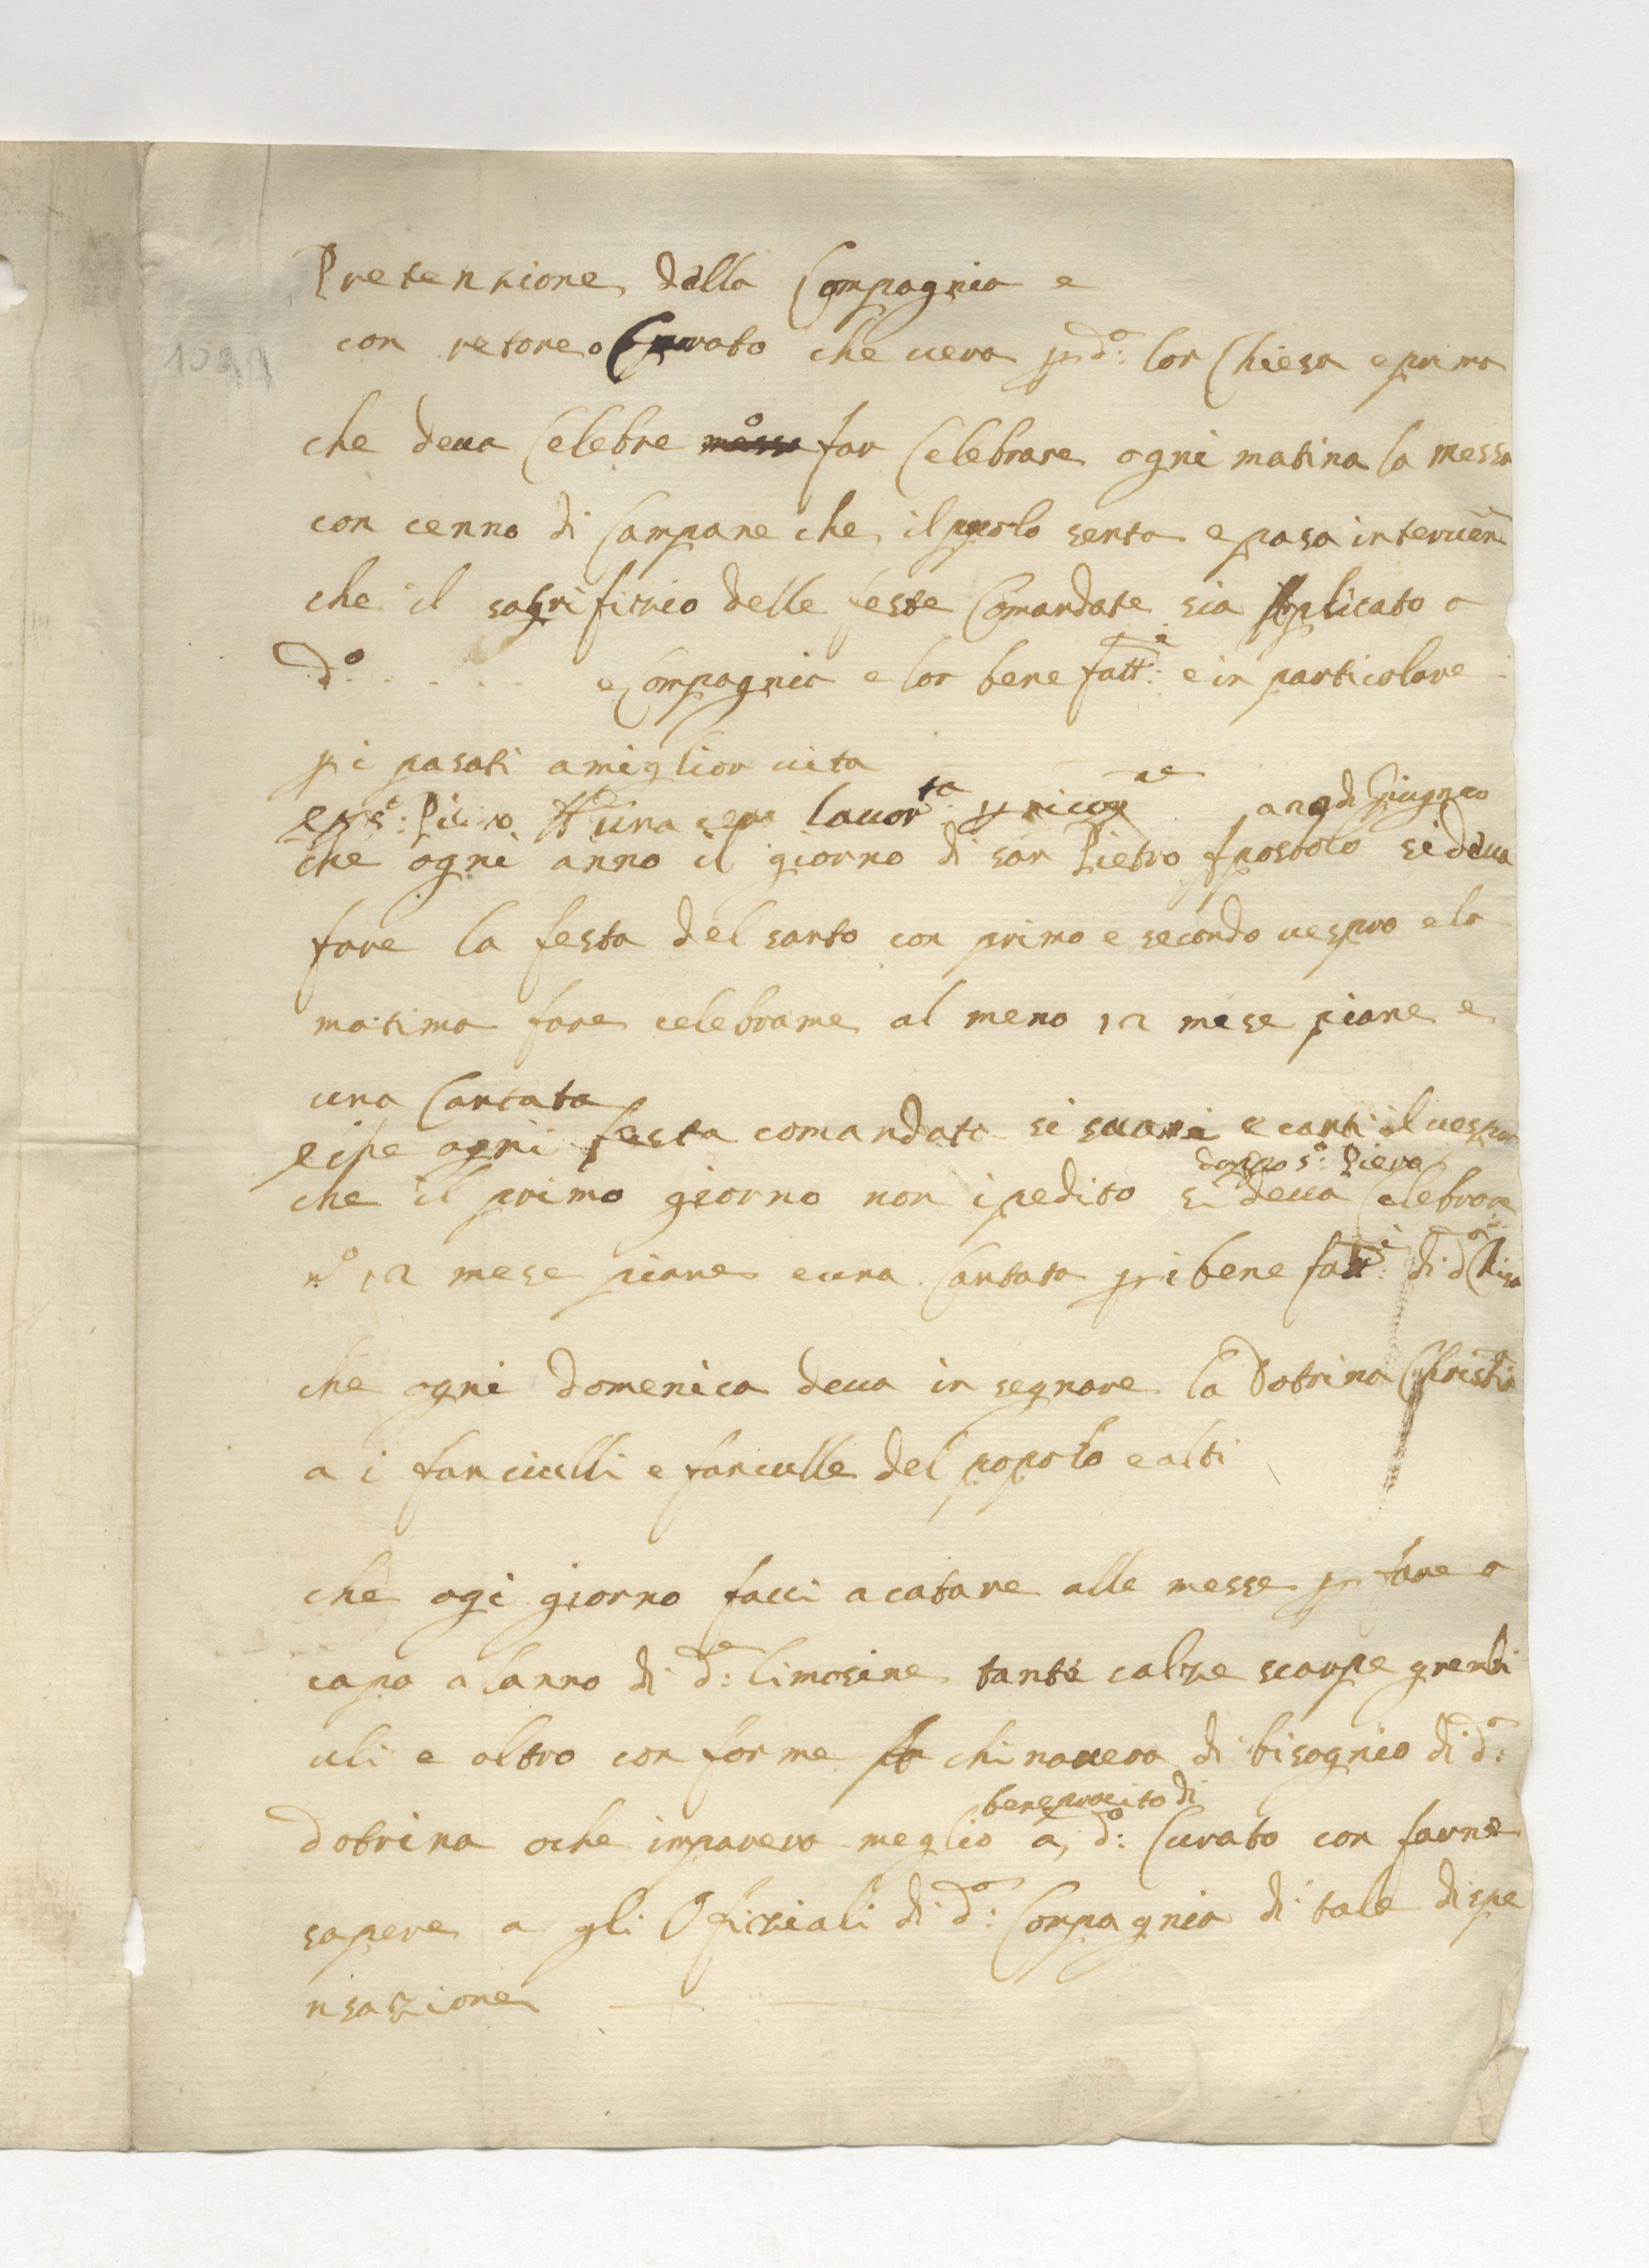 Pretenzione dalla Compagnia e
con retore o Curato che vera p d.o: lor Chiesa e prima
che deva Celebre far Celebrare ogni matina la messa
con cenno di Campane che il popolo senta e posa interven
che il sagrifizio delle feste Comandate sia Aplicato a
d.o . . . . . e Compagnia e lor bene fatt.i: e in particolare
p i pasati a miglior vita
e p S.o: Piero una cera lavor.ta p ricog
a 29 di Giugnio
che ogni anno il giorno di san Pietro Apostolo si deva
fare la festa del santo con primo e secondo vespro e la
matima fare celebrame al meno 12 mese piane e
una Cantata
e che ogni festa comandata si suoni e canti il vespro
doppo S.o: Piero
che il primo giorno non ipedito si deva Celebrare
n.o 12 mese piane e una Cantata p i bene fatt.i: di d.a Chiesa
che ogni Domenica deva in segnare la Dotrina Christia
a i fanciulli e fanculle del popolo e alti
che ogi giorno facci acatare alle messe p fare a
capo a lanno di d.e: limosine tante calze scarpe grenbi
uli e altro con forme chi navera di bisognio di d.a:
beneprocito di
dotrina o che imparera meglio a, d.o: Curato con farne
sapere a gli Ofiziali di d.a: Conpagnia di tale dispe
nsazione